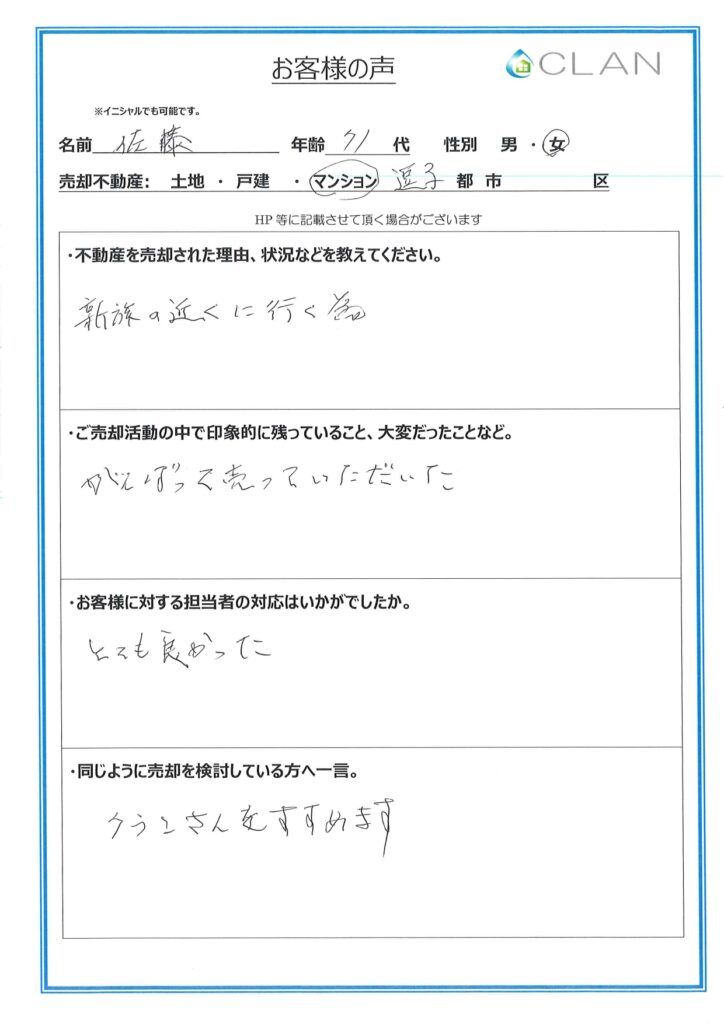 お客様の声
CLAN
※イニシャルでも可能です。
名前 佐藤 年齢 71 代 性別 男 ・ 女
売却不動産： 土地 ・ 戸建 ・ マンション 逗子 都 市 区
HP 等に記載させて頂く場合がございます
・不動産を売却された理由、状況などを教えてください。
親族の近くに行く為
・ご売却活動の中で印象的に残っていること、大変だったことなど。
がんばって売っていただいた
・お客様に対する担当者の対応はいかがでしたか。
とても良かった
・同じように売却を検討している方へ一言。
クランさんをすすめます